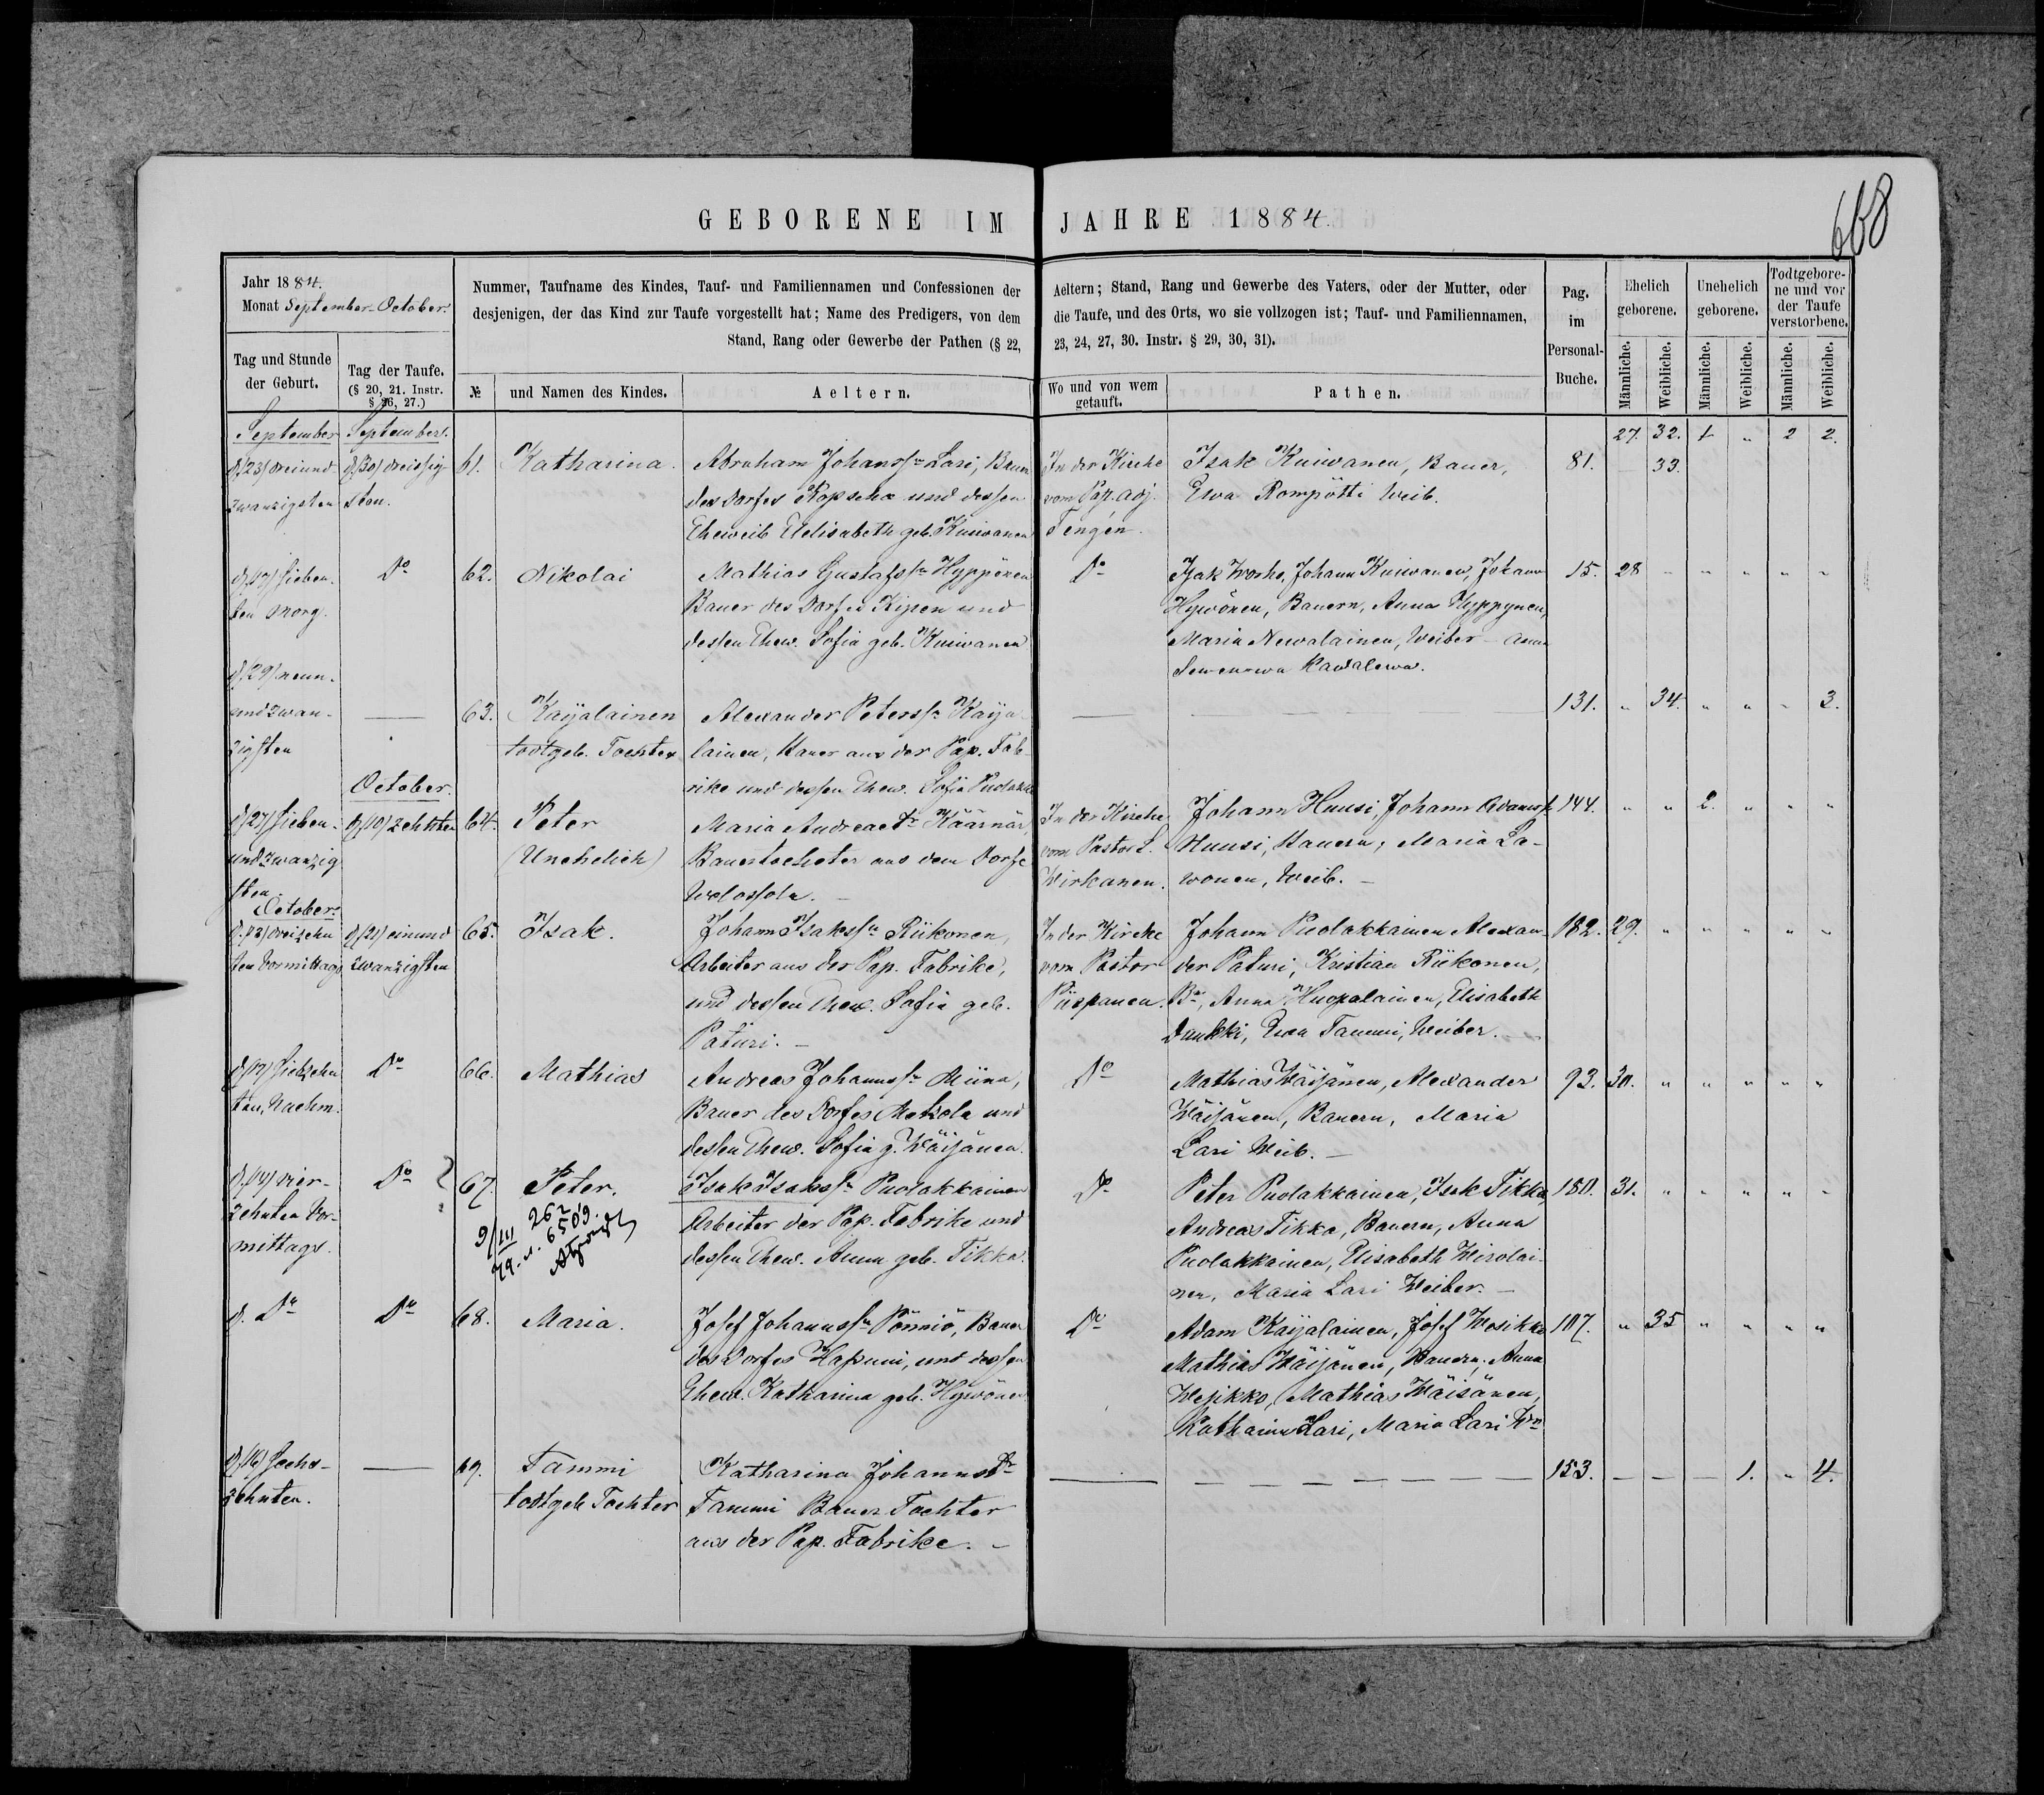 GEBORENE IM JAHRE 1884.
668
Jahr 1884.
Monat September-October.
Tag und Stunde
der Geburt.
Tag der Taufe.
(§ 20, 21. Instr.
§ 26, 27.)
Nummer, Taufname des Kindes, Tauf- und Familiennamen und Confessionen der
desjenigen, der das Kind zur Taufe vorgestellt hat; Name des Predigers, von dem
Stand, Rang oder Gewerbe der Pathen (§ 22,
№
und Namen des Kindes.
Aeltern.
Aeltern; Stand, Rang und Gewerbe des Vaters, oder der Mutter, oder
die Taufe, und des Orts, wo sie vollzogen ist; Tauf- und Familiennamen,
23, 24, 27, 30. Instr. § 29, 30, 31).
Wo und von wem
getauft.
Pathen.
Pag.
im
Personal-
Buche.
Ehelich
geborene.
Unehelich
geborene.
Todtgebore-
ne und vor
der Taufe
verstorbene.
Männliche.
Weibliche.
Männliche.
Weibliche.
Männliche.
Weibliche.
27. 32. 1 " 2 2.
September
d. (23) dreiund
zwanzigsten
September.
d. (30) dreissig-
sten.
61.
Katharina.
Abraham Johannss. Lari, Bauer
des Dorfes Kopscha und dessen
Eheweib Elisabeth geb. Kuiwanen
In der Kirche
vom Past. Adj.
Tengén.
Isak Kuiwanen, Bauer,
Ewa Rompötti Weib.
81. 33.
sieben-
ten Morg.
Do
62.
Nikolai
Mathias Gustafss. Hyppönen
Bauer des Dorfes Kipen und
dessen Ehew. Sofia geb. Kuiwanen
Do
Johann Kuiwanen, Johann
Hywönen, Bauern, Anna Hyppynen,
Maria Newalainen, Weiber
15. 28 - " " " "
d. (29) neun-
und zwan-
zigsten
63.
Kaijalainen
todtgeb. Tochter
Alexander Peterss. Kaija-
lainen, Bauer aus der Pap. Fab-
rike und dessen Ehew. Sofia
131. " 34. " " " 3.
d. (27) sieben-
und zwanzig
sten
October.
d. (10) zehnten
64.
Peter
(Unehelich)
Maria Andreae
Bauertochter aus dem Dorfe
In der Kirche
vom Pastor L.
Wirkanen.
Johann Huusi, Johann Adamss.
Huusi, Bauern, Maria La-
wonen, Weib.
144. " " 2. " " "
October.
d. (13) dreizehn
ten Vormittags
d. (21) einund
zwanzigsten
65.
Isak.
Johann Isakss. Riikonen,
Arbeiter aus der Pap. Fabrike,
und dessen Ehew. Sofia geb.
Paturi.
In der Kirche
vom Pastor
Piispanen.
Johann Puolakkainen Alexan-
der Paturi, Kristian Riikonen,
Anna Huopalainen, Elisabeth
Ewa Tammi, Weiber.
182. 29. " " " " "
d. (17) siebzehn
ten, Nachm.
Do
66.
Mathias
Andreas Johannss. Miina,
Bauer des Dorfes und
dessen Ehew. Sofia g. Wäisänen.
Do
Mathias Wäisänen, Alexander
Wäisänen, Bauern, Maria
Lari Weib.
92. 30. " " " " "
d. (14) vier-
zehnten Vor-
mittags.
Do
67.
Peter.
9/III 262
79. 6509.
Isak Isakss. Puolakkainen
Arbeiter der Pap. Fabrike und
dessen Ehew. Anna geb. Tikka.
Do
Peter Puolakkainen, Isak Tikka,
Andreas Tikka, Bauern, Anna
Puolakkainen, Elisabeth Wirolai-
nen, Maria Lari Weiber.
180. 31. " " " " "
d. Do
Do
68.
Maria.
Josef Johannss. Pönniö, Bauer
des Dorfes Hapuni, und dessen
Ehew. Katharina geb. Hywönen
Do
Adam Kaijalainen, Josef Wesikko
Mathias Wäisänen, Bauern, Anna
Wesikko, Mathias Wäisänen,
Katharina Lari, Maria Lari
107. " 35 " " " "
d. (16) sechs-
zehnten.
69.
Tammi
todtgeb. Tochter
Katharina Johanns
Tammi Bauer Tochter
aus der Pap. Fabrike.
153. - - - 1. " 4.